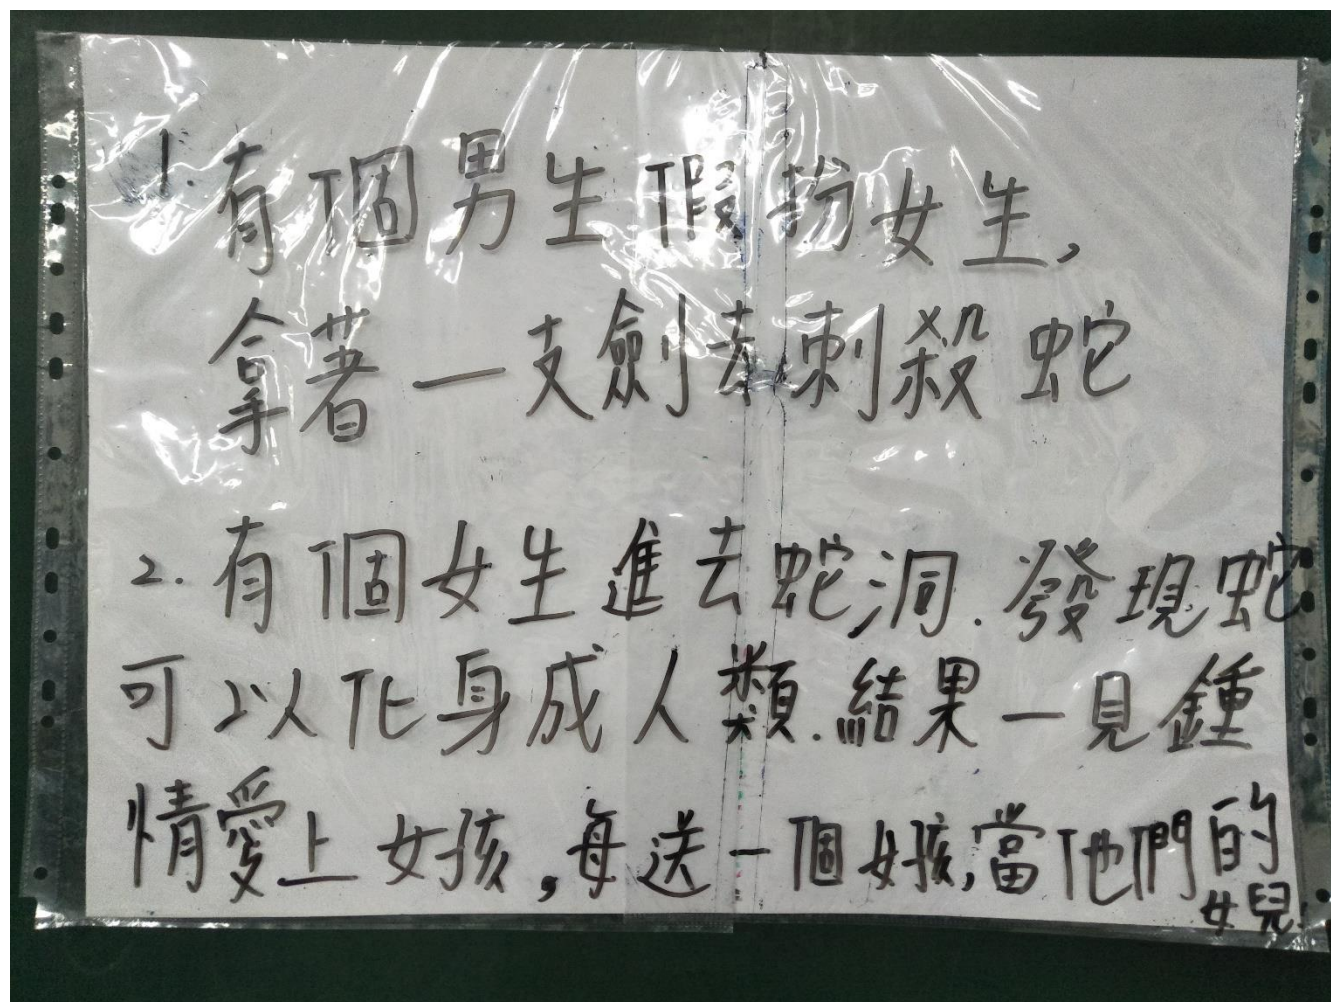 1.有個男生假扮女生,
拿著一支劍去刺殺蛇
2.有個女生進去蛇洞.發現蛇
可以化身成人類.結果一見鍾
情愛上女孩,每送一個女孩,當他們的
女兒.